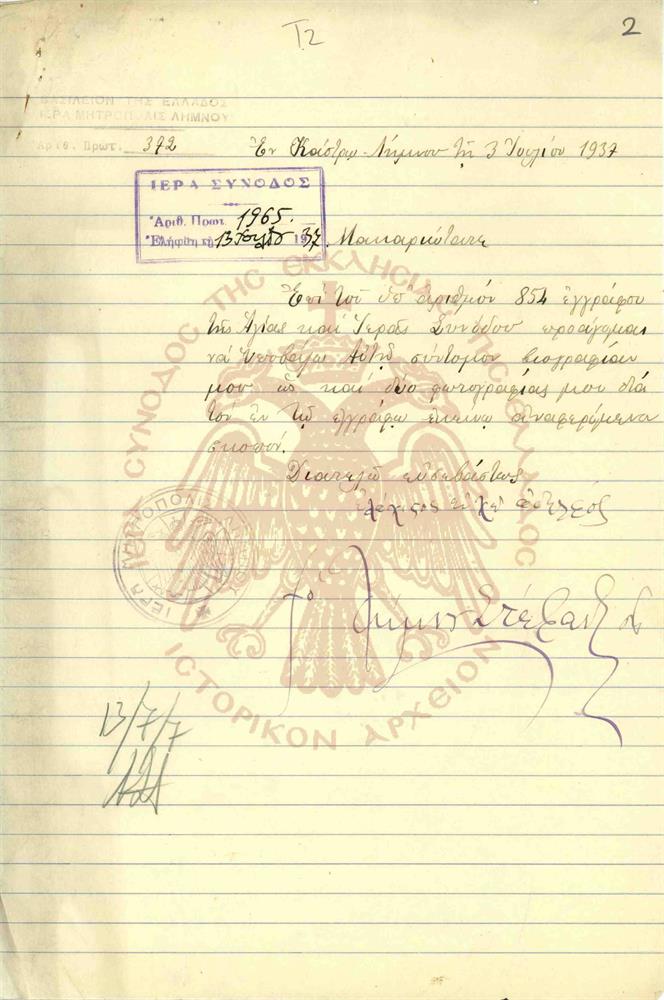 Γ2
2
ΒΑΣΙΛΕΙΟΝ ΤΗΣ ΕΛΛΑΔΟΣ
ΙΕΡΑ ΜΗΤΡΟΠΟΛΙΣ ΛΗΜΝΟΥ
Αριθ. Πρωτ. 372
Ἐν Κάστρῳ-Λήμνου τῇ 3 Ἰουλίου 1937
ΙΕΡΑ ΣΥΝΟΔΟΣ
Ἀριθ. Πρωτ. 1965.
Ἐλήφθη τῇ 13 Ἰουλίου 1937.
Μακαριώτατε
Ἐπὶ τοῦ ὑπ' ἀριθμόν 854 ἐγγράφου
τῆς Ἁγίας καὶ Ἱερᾶς Συνόδου προάγομαι
νὰ ὑποβάλω Αὐτῇ σύντομον βιογραφίαν
μου ὡς καὶ δύο φωτογραφίας μου διὰ
τὸν ἐν τῷ ἐγγράφῳ ἐκείνῳ ἀναφερόμενον
σκοπόν.
Διατελῶ εὐσεβάστως
ἐλάχιστος ἐν Χῷ ἀδελφός
† ὁ Λήμνου Στέφανος
ΙΕΡΑ ΜΗΤΡΟΠΟΛΙΣ ΛΗΜΝΟΥ
13/7/7
ΙΕΡΑ ΣΥΝΟΔΟΣ ΤΗΣ ΕΚΚΛΗΣΙΑΣ ΤΗΣ ΕΛΛΑΔΟΣ
ΙΣΤΟΡΙΚΟΝ ΑΡΧΕΙΟΝ